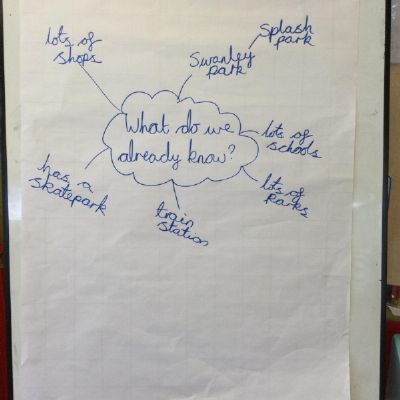 lots of
shops
Swanley
park
Splash
park
What do we
already know?
lots of
schools
has a
skatepark
lots of
parks
train
station